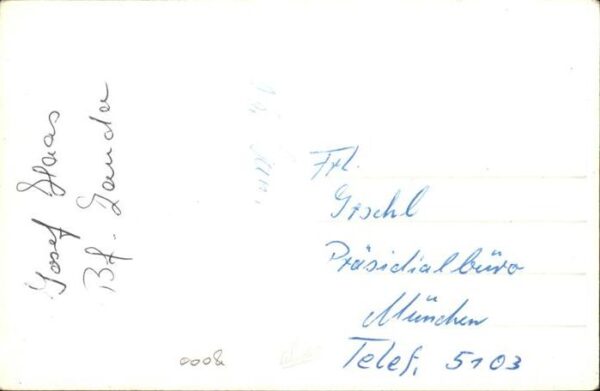 Josef Haas
Bf. Lander
Frl.
Gschl
Präsidialbüro
München
Telef. 5103
0008